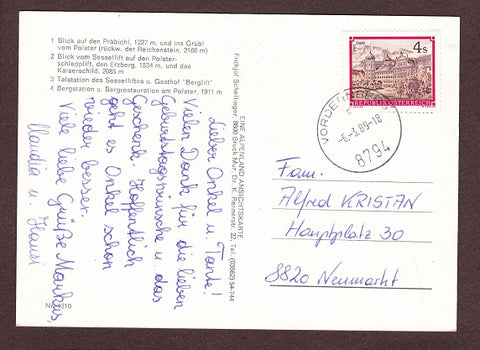 1 Blick auf den Präbichl, 1227 m, und ins Grübl
vom Polster (rückw. der Reichenstein, 2166 m)
2 Blick vom Sessellift auf den Polster-
schlepplift, den Erzberg, 1534 m, und das
Kaiserschild, 2085 m
3 Talstation des Sesselliftes u. Gasthof "Berglift"
4 Bergstation u. Bergrestauration am Polster, 1911 m
Lieber Onkel u. Tante!
Vielen Dank für die lieben
Geburtstagswünsche u. das
Geschenk. Hoffentlich
geht es Onkel schon
wieder besser.
Viele liebe Grüße Markus,
Claudia u. Hansi
EINE ALPENLAND ANSICHTSKARTE
Frithjof Schellinger, 8600 Bruck/Mur, Dr. K. Rennerstr. 22, Tel. (03862) 54-744
4 S
REPUBLIK ÖSTERREICH
-6.-3.89-18
8794
Fam.
Alfred KRISTAN
Hauptplatz 30
8820 Neumarkt